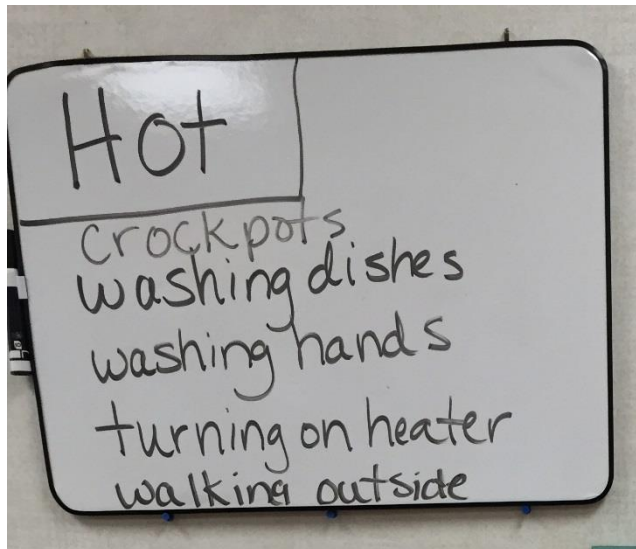 Hot
crockpots
washing dishes
washing hands
turning on heater
walking outside